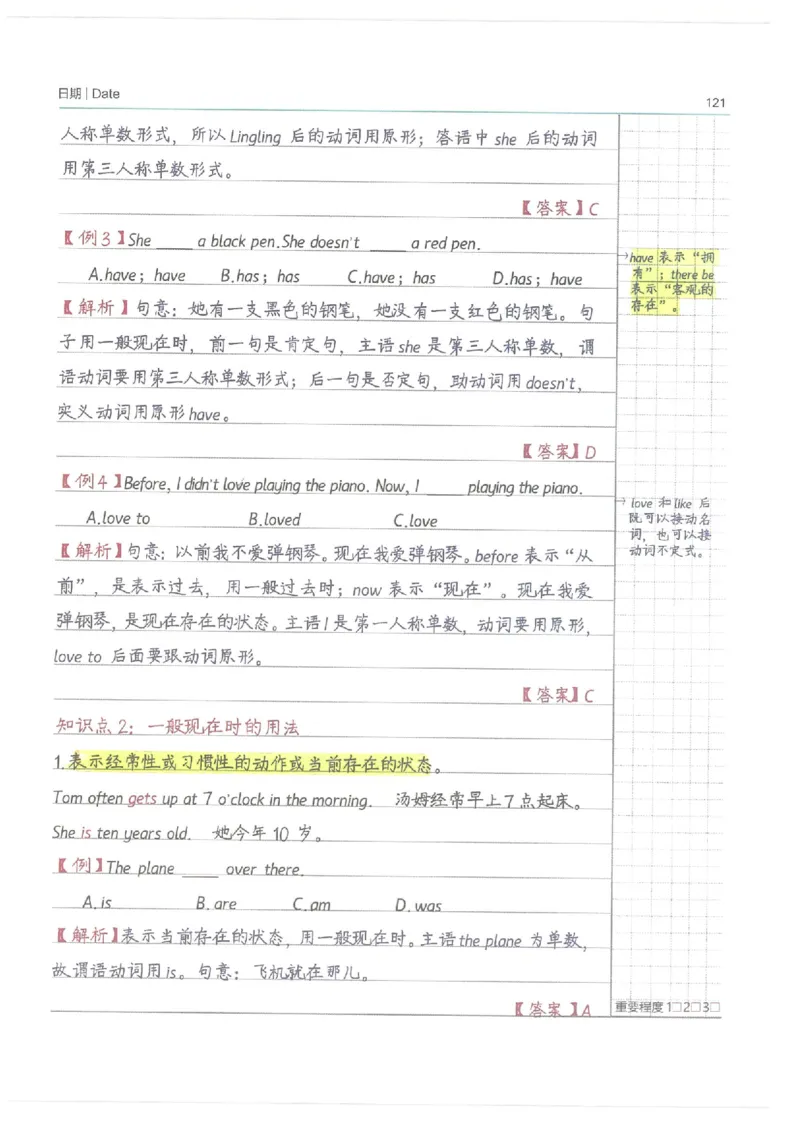 日期 | Date
121
人称单数形式，所以 Lingling 后的动词用原形；答语中 she 后的动词
用第三人称单数形式。
【答案】C
【例3】She _____ a black pen.She doesn't _____ a red pen.
A.have；have B.has；has C.have；has D.has；have
【解析】句意：她有一支黑色的钢笔，她没有一支红色的钢笔。句
子用一般现在时，前一句是肯定句，主语 she 是第三人称单数，谓
语动词要用第三人称单数形式；后一句是否定句，助动词用 doesn't，
实义动词用原形 have。
【答案】D
→have 表示“拥
有”；there be
表示“客观的
存在”。
【例4】Before, I didn't love playing the piano. Now, I _____ playing the piano.
A.love to B.loved C.love
【解析】句意：以前我不爱弹钢琴。现在我爱弹钢琴。before 表示“从
前”，是表示过去，用一般过去时；now 表示“现在”。现在我爱
弹钢琴，是现在存在的状态。主语 I 是第一人称单数，动词要用原形，
love to 后面要跟动词原形。
【答案】C
→ love 和 like 后
既可以接动名
词，也可以接
动词不定式。
知识点2：一般现在时的用法
1.表示经常性或习惯性的动作或当前存在的状态。
Tom often gets up at 7 o'clock in the morning. 汤姆经常早上7点起床。
She is ten years old. 她今年10岁。
【例】The plane _____ over there.
A. is B. are C. am D. was
【解析】表示当前存在的状态，用一般现在时。主语 the plane 为单数，
故谓语动词用 is。句意：飞机就在那儿。
【答案】A
重要程度 1□2□3□